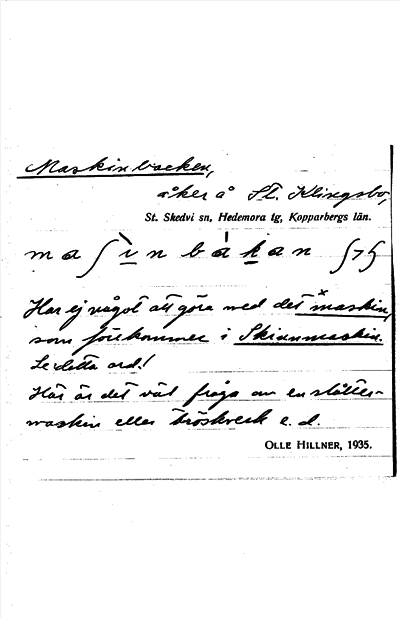 Maskinbacken,
åker å St. Klingsbo,
St. Skedvi sn, Hedemora tg, Kopparbergs län.
maʃinbakan
Har ej något att göra med det maskin,
som förekommer i Skinnmaskin.
Se detta ord!
Här är det väl fråga om en slåtter-
maskin eller tröskverk e. d.
OLLE HILLNER, 1935.